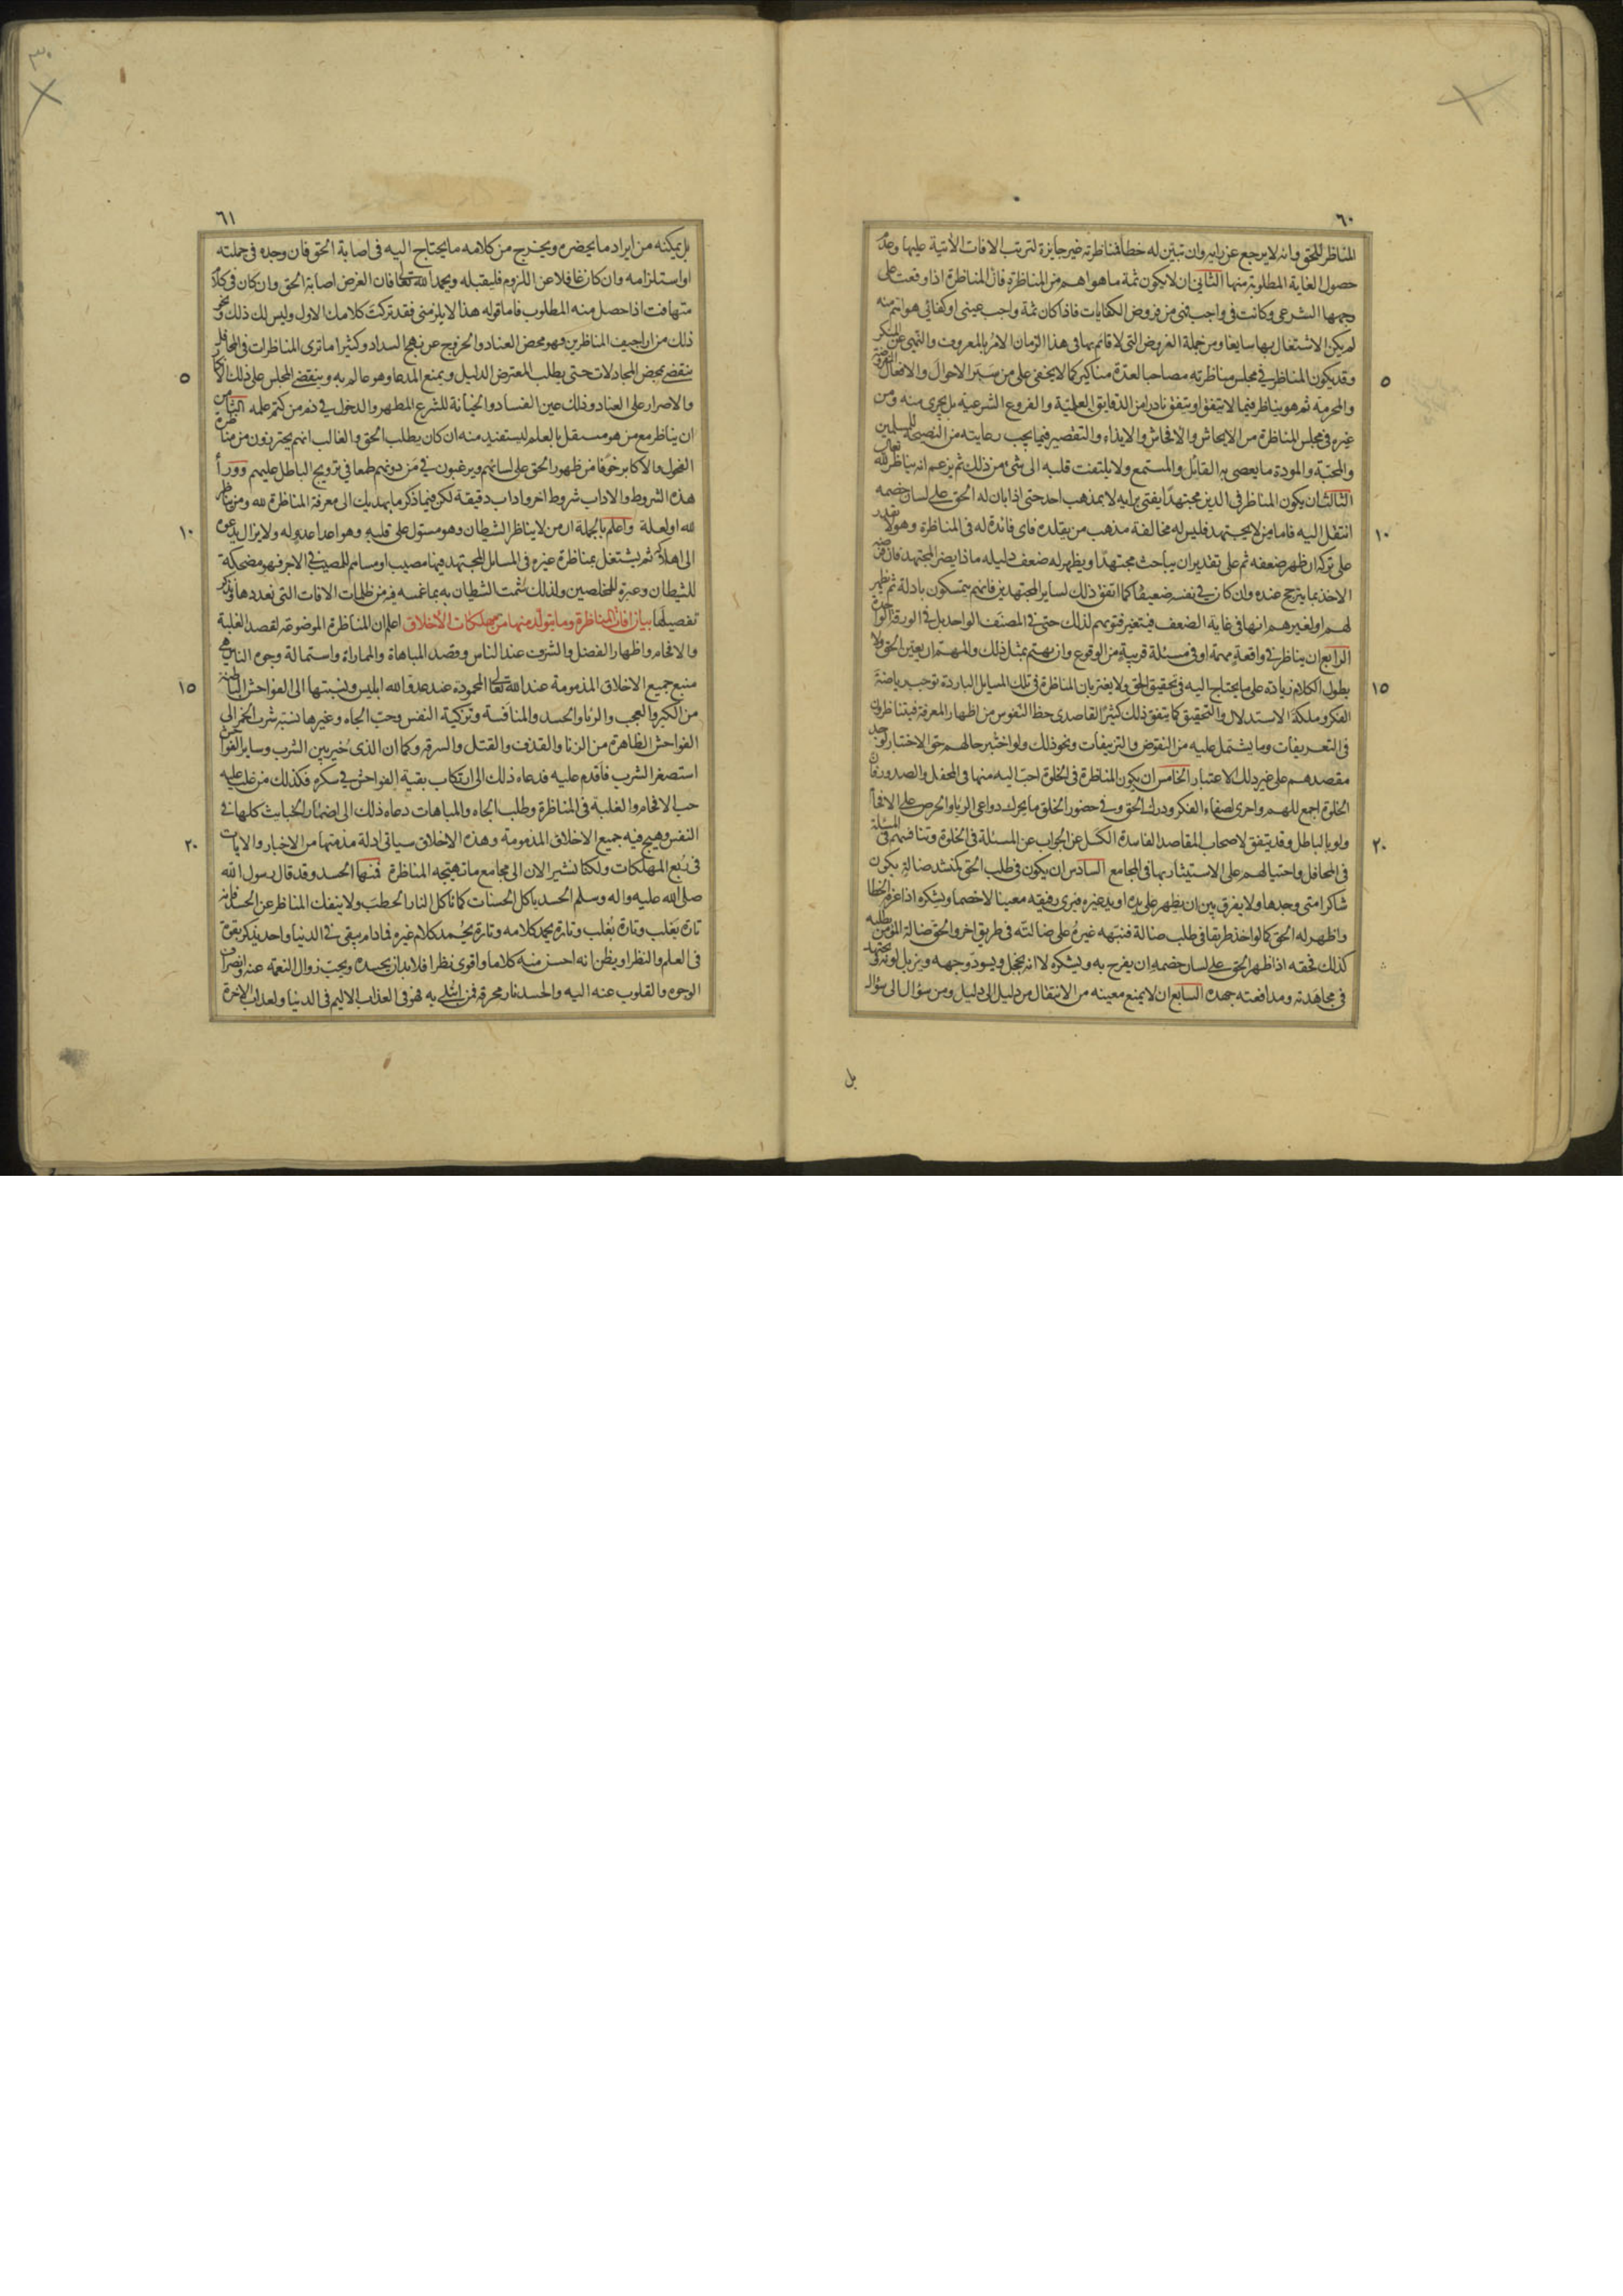 ٦٠
المناظر للمحق وانه لا يرجع عن رايه وان تبين له خطأ فمناظرته غير جايزة لترتب الافات الآتية عليها وعدم
حصول الغاية المطلوبة منها الثاني ان لا يكون ثمة ما هو اهم من المناظرة فان المناظرة اذا وقعت على
وجهها الشرعي وكانت في واجب فهي من فروض الكفايات فاذا كان ثمة واجب عيني او كفائي هو اهم منه
لم يكن الاشتغال بها سايغا ومن جملة الفروض التي لا قائم بها في هذا الزمان الامر بالمعروف والنهي عن المنكر
٥
وقد يكون المناظر في مجلس مناظرته مصاحبا لعدة مناكير كما لا يخفى على من سبر الاحوال والافعال المفروضة
والمحرمة ثم هو يناظر فيما لا يتفق او يتفق نادرا من الدقايق العلمية والفروع الشرعية بل يجري منه ومن
غيره في مجلس المناظرة من الايحاش والافحاش والايذاء والتقصير فيما يجب رعايته من النصيحة للمسلمين
والمحبة والمودة ما يعصي به القائل والمستمع ولا يلتفت قلبه الى شئ من ذلك ثم يزعم انه يناظر لله تعالى
الثالث ان يكون المناظر في الدين مجتهدا يفتي برايه لا بمذهب احد حتى اذا بان له الحق على لسان خصمه
١٠
انتقل اليه فاما من لا يجتهد فليس له مخالفة مذهب من يقلده فاي فائدة له في المناظرة وهو لا يقدر
على تركه ان ظهر ضعفه ثم على تقدير ان يباحث مجتهدا ويظهر له ضعف دليله ماذا يضر المجتهد فان فرضه
الاخذ بما يترجح عنده وان كان في نفسه ضعيفا كما اتفق ذلك لساير المجتهدين فانهم يتمسكون بادلة ثم يظهر
لهم او لغيرهم انها في غاية الضعف فيتغير فتويهم لذلك حتى في المصنف الواحد بل في الورقة الواحدة
الرابع ان يناظر في واقعة مهمة او في مسئلة قريبة من الوقوع وان يهتم بمثل ذلك والمهم ان يعين الحق ولا
١٥
يطول الكلام زيادة على ما يحتاج اليه في تحقيق الحق ولا يغتر بان المناظرة في تلك المسايل الباردة توجب رياضة
الفكر وملكة الاستدلال والتحقيق كما يتفق ذلك كثيرا لقاصدي حظ النفوس من اظهار المعرفة فيتناظرون
في التعريفات وما يشتمل عليه من النقوض والتزييفات ونحو ذلك ولو اختبر حالهم حق الاختبار لوجد
مقصدهم على غير ذلك الاعتبار الخامس ان يكون المناظرة في الخلوة احب اليه منها في المحفل والصدور فان
الخلوة اجمع للهم واحرى لصفاء الفكر ودرك الحق وفي حضور الخلق ما يحرك دواعي الريا والحرص على الافحام
٢٠
ولو بالباطل وقد يتفق لاصحاب المقاصد الفاسدة الكسل عن الجواب عن المسئلة في الخلوة وتنافسهم في المسئلة
في المحافل واحتيالهم على الاستيثار بها في المجامع السادس ان يكون في طلب الحق كمنشد ضالة يكون
شاكرا متى وجدها ولا يفرق بين ان يظهر على يده او يد غيره فيرى رفيقه معينا لا خصما ويشكره اذا عرفه الخطا
واظهر له الحق كما لو اخذ طريقا في طلب ضالة فنبهه غيره على ضالته في طريق اخر والحق ضالة المؤمن يطلبه
كذلك فحقه اذا ظهر الحق على لسان خصمه ان يفرح به ويشكره لا انه يخجل ويسود وجهه ويزيل لونه ويجتهد
في مجاهدته ومدافعته جهده السابع ان لا يمنع معينه من الانتقال من دليل الى دليل ومن سؤال الى سؤال
بل
٣٠
٦١
بل يمكنه من ايراد ما يحضره ويخرج من كلامه ما يحتاج اليه في اصابة الحق فان وجده في جملته
او استلزامه وان كان غافلا عن اللزوم فليقبله ويحمد الله تعالى فان الغرض اصابة الحق وان كان في كلام
متهافت اذا حصل منه المطلوب فاما قوله هذا لا يلزمني فقد تركت كلامك الاول وليس لك ذلك ونحو
ذلك من اراجيف المناظرين فهو محض العناد والخروج عن نهج السداد وكثيرا ما ترى المناظرات في المحافل
٥
تنقضي بمحض المجادلات حتى يطلب المعترض الدليل ويمنع المدعا وهو عالم به وينقضي المجلس على ذلك الانكار
والاصرار على العناد وذلك عين الفساد والخيانة للشرع المطهر والدخول في ذم من كتم علمه الثامن
ان يناظر مع من هو مستقل بالعلم ليستفيد منه ان كان يطلب الحق والغالب انهم يحترزون من مناظرة
الفحول والاكابر خوفا من ظهور الحق على لسانهم ويرغبون في من دونهم طمعا في ترويج الباطل عليهم ووراء
هذه الشروط والاداب شروط اخر واداب دقيقة لكن فيما ذكر ما يهديك الى معرفة المناظرة لله ومن يناظر
١٠
لله او لعلة واعلم بالجملة ان من لا يناظر الشيطان وهو مستول على قلبه وهو اعدا عدو له ولا يزال يدعوه
الى هلاكه ثم يشتغل بمناظرة غيره في المسايل المجتهد فيها مصيب او مساهم للمصيب في الاجر فهو مضحكة
للشيطان وعبرة للمخلصين ولذلك شمت الشيطان به بما غمسه فيه من ظلمات الافات التي نعددها ونذكر
تفصيلها بيان افات المناظرة وما يتولد منها من مهلكات الاخلاق اعلم ان المناظرة الموضوعة لقصد الغلبة
والافحام واظهار الفضل والشرف عند الناس وقصد المباهاة والمماراة واستمالة وجوه الناس هي
١٥
منبع جميع الاخلاق المذمومة عند الله تعالى المحمودة عند عدو الله ابليس ونسبتها الى الفواحش الباطنة
من الكبر والعجب والريا والحسد والمنافسة وتزكية النفس وحب الجاه وغيرها نسبة شرب الخمر الى
الفواحش الظاهرة من الزنا والقذف والقتل والسرقة وكما ان الذي خير بين الشرب وساير الفواحش
استصغر الشرب فاقدم عليه فدعاه ذلك الى ارتكاب بقية الفواحش في سكره فكذلك من غلب عليه
حب الافحام والغلبة في المناظرة وطلب الجاه والمباهات دعاه ذلك الى اضمار الخبايث كلها في
٢٠
النفس وهيج فيه جميع الاخلاق المذمومة وهذه الاخلاق سياتي ادلة مذمتها من الاخبار والايات
في ربع المهلكات ولكنا نشير الان الى مجامع ما تهيجه المناظرة فمنها الحسد وقد قال رسول الله
صلى الله عليه واله وسلم الحسد ياكل الحسنات كما تاكل النار الحطب ولا ينفك المناظر عن الحسد فانه
تارة يغلب وتارة يغلب وتارة يحمد كلامه وتارة يحمد كلام غيره فما دام يبقى في الدنيا واحد يذكر بقوة
في العلم والنظر او يظن انه احسن منه كلاما واقوى نظرا فلا بد ان يحسده ويحب زوال النعمة عنه وانصراف
الوجوه والقلوب عنه اليه والحسد نار محرقة فمن ابتلي به فهو في العذاب الاليم في الدنيا ولعذاب الاخرة